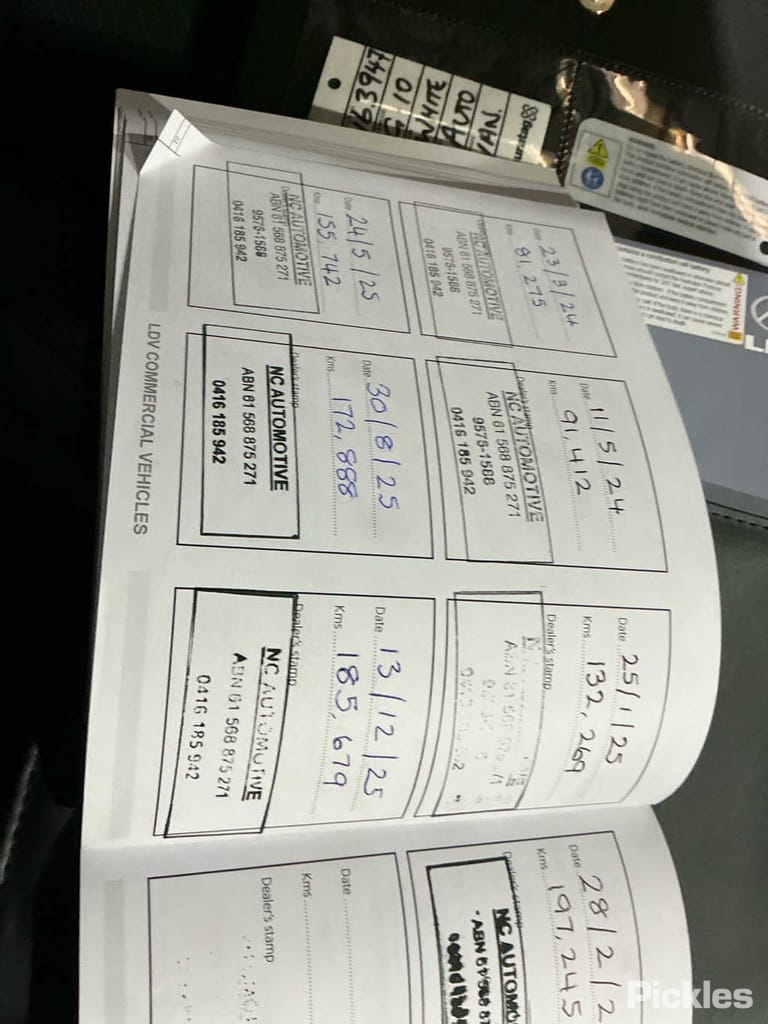 WHITE
AUTO
VAN.
WARNING
WARNING
Date 23/3/24
Kms 81,275
NC AUTOMOTIVE
ABN 61 568 875 271
9576-1588
0416 185 942
Date 11/5/24
Kms 91,412
Dealer's stamp
NC AUTOMOTIVE
ABN 61 568 875 271
9576-1588
0416 185 942
Date 25/1/25
Kms 132,269
Dealer's stamp
Date 24/5/25
Kms 155,742
NC AUTOMOTIVE
ABN 61 568 875 271
9576-1588
0416 185 942
Date 30/8/25
Kms 172,888
Dealer's stamp
NC AUTOMOTIVE
ABN 61 568 875 271
0416 185 942
Date 13/12/25
Kms 185,679
Dealer's stamp
NC AUTOMOTIVE
ABN 61 568 875 271
0416 185 942
LDV COMMERCIAL VEHICLES
Date 28/2/2
Kms 197,245
Dealer's stamp
NC AUTOMO
ABN 61 568 87
Date
Kms
Dealer's stamp
Pickles